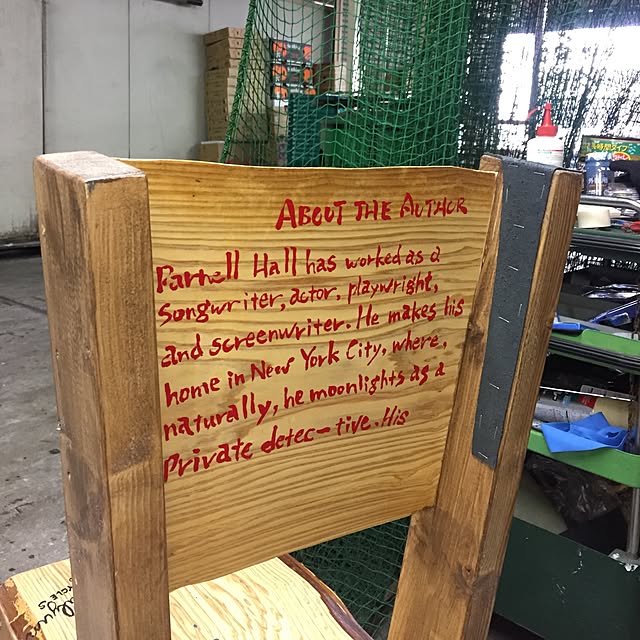 ABOUT THE AUTHOR
Parnell Hall has worked as a
songwriter, actor, playwright,
and screenwriter. He makes his
home in New York City, where,
naturally, he moonlights as a
Private detec-tive. His